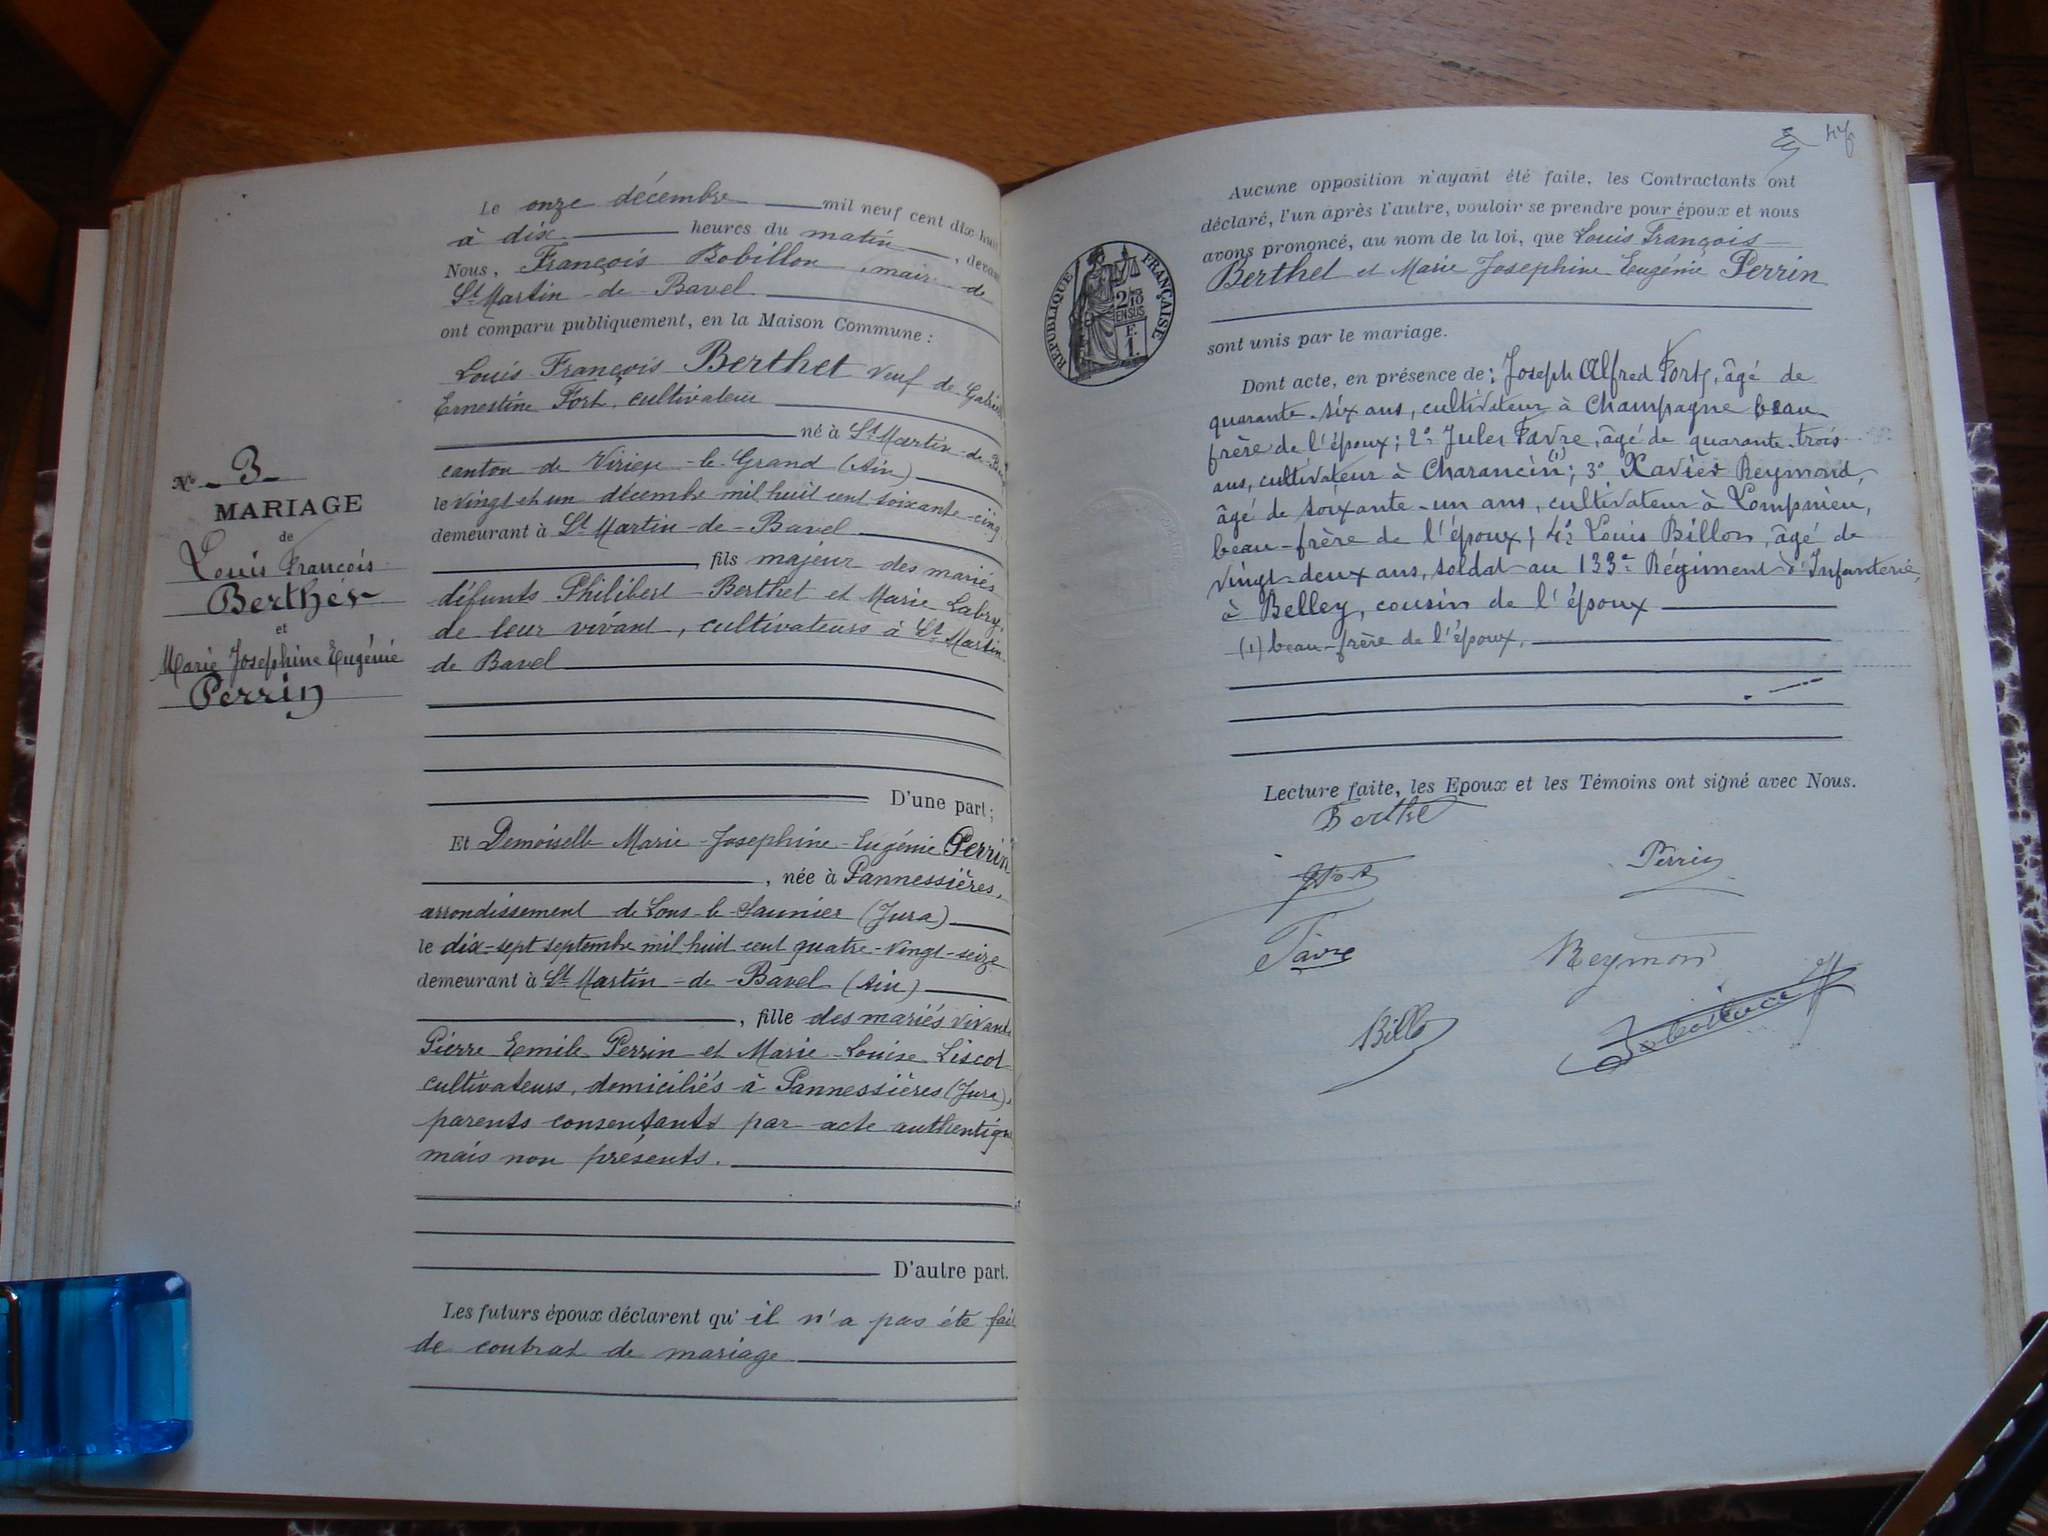 N° 3
MARIAGE
de
Louis François
Berthet
et
Marie Josephine Eugénie
Perrin
Le onze décembre mil neuf cent dix-huit
à dix heures du matin, devant
Nous, François Bobillon, maire de
St Martin-de-Bavel
ont comparu publiquement, en la Maison Commune :
Louis François Berthet veuf de
Ernestine Fort, cultivateur
né à St Martin-de-
canton de Virieu-le-Grand (Ain)
le vingt et un décembre mil huit cent soixante-cinq
demeurant à St Martin-de-Bavel
, fils majeur des mariés
défunts Philibert Berthet et Marie Labry,
de leur vivant, cultivateurs à St Martin
de Bavel
D'une part ;
Et Demoiselle Marie-Josephine-Eugénie Perrin
, née à Pannessières,
arrondissement de Lons-le-Saunier (Jura)
le dix-sept septembre mil huit cent quatre-vingt-seize
demeurant à St Martin-de-Bavel (Ain)
, fille des mariés vivants
Pierre Emile Perrin et Marie-Louise Liscot
cultivateurs, domiciliés à Pannessières (Jura),
parents consentants par acte authentique
mais non présents.
D'autre part.
Les futurs époux déclarent qu' il n'a pas été fait
de contrat de mariage
Aucune opposition n'ayant été faite, les Contractants ont
déclaré, l'un après l'autre, vouloir se prendre pour époux et nous
avons prononcé, au nom de la loi, que Louis François
Berthet et Marie Josephine Eugénie Perrin
RÉPUBLIQUE FRANÇAISE
2/10
EN SUS
F.
1.
sont unis par le mariage.
Dont acte, en présence de : Joseph Alfred Fort, âgé de
quarante-six ans, cultivateur à Champagne beau
frère de l'époux ; 2° Jules Favre, âgé de quarante-trois
ans, cultivateur à Charancin (1) ; 3° Xavier Reymond,
âgé de soixante-un ans, cultivateur à Lompnieu,
beau-frère de l'époux ; 4° Louis Billon, âgé de
vingt-deux ans, soldat au 133e Régiment d'Infanterie,
à Belley, cousin de l'époux
(1) beau-frère de l'époux.
Lecture faite, les Epoux et les Témoins ont signé avec Nous.
Berthet
Perrin
Fort
Favre
Reymond
Billon